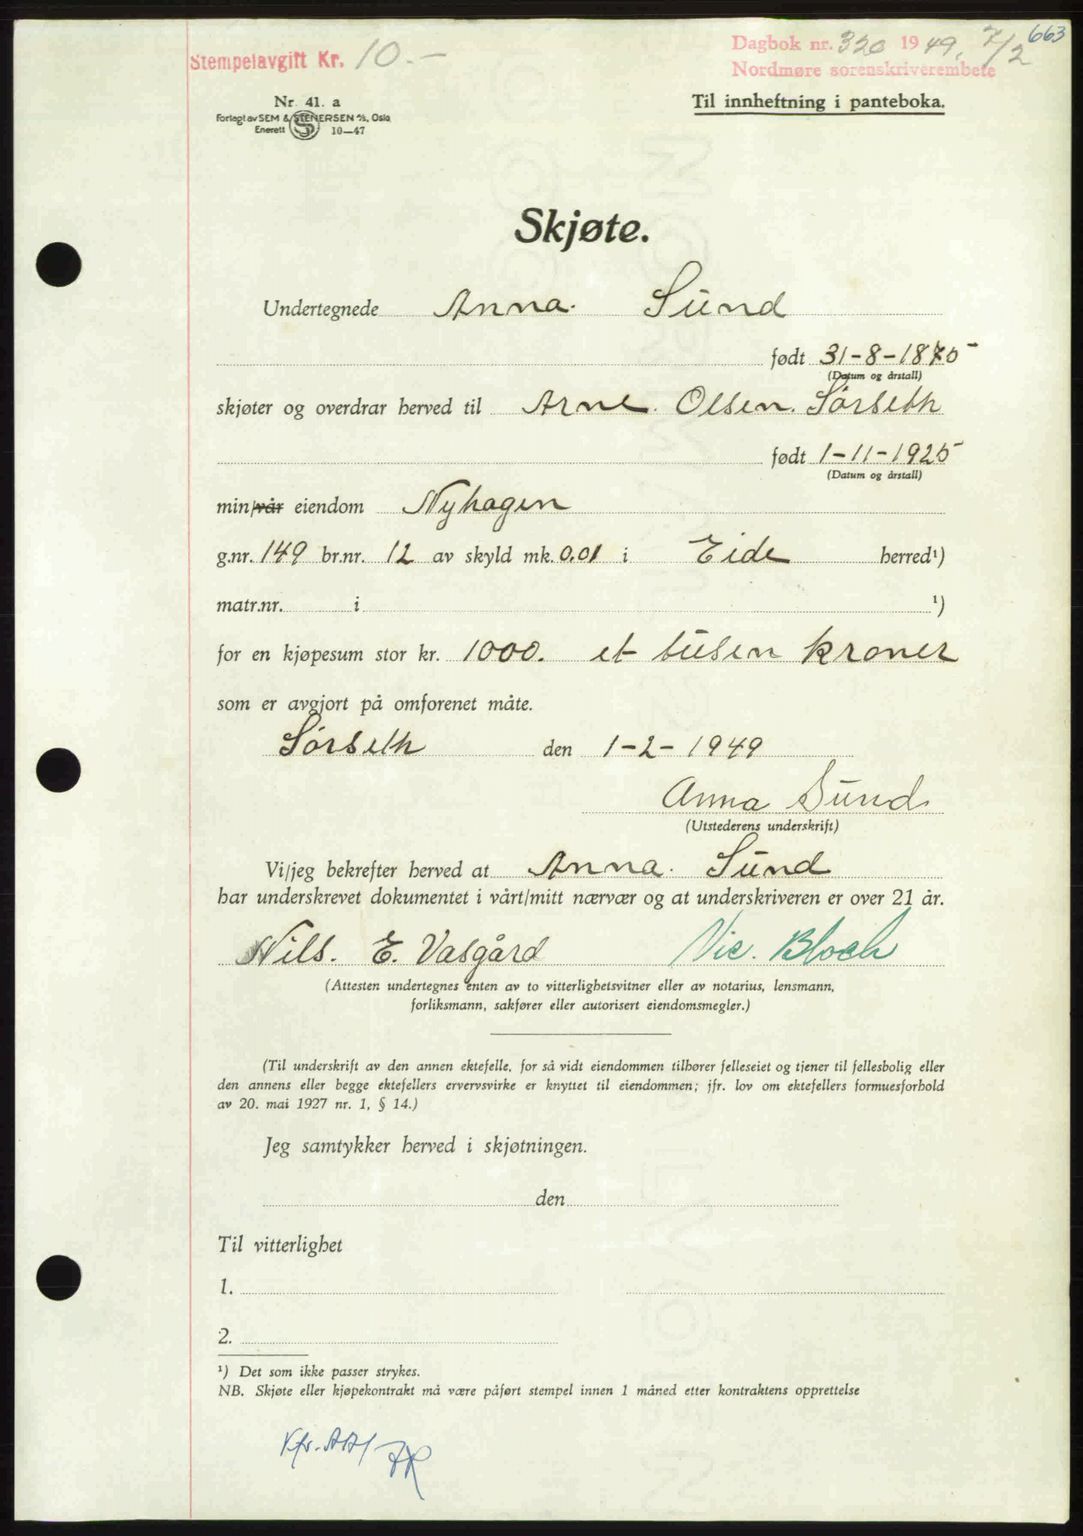 663
Stempelavgift Kr. 10.-
Dagbok nr. 320 1949. 7/2
Nordmøre sorenskriverembete
Nr. 41. a
Forlagt av SEM & STENERSEN A/S, Oslo
Enerett 10—47
Til innheftning i panteboka.
Skjøte.
Undertegnede Anna. Sund
født 31-8-1875
(Datum og årstall)
skjøter og overdrar herved til Arne. Olsen. Sørseth
født 1-11-1925
(Datum og årstall)
min/vår eiendom Nyhagen
g.nr. 149 br.nr. 12 av skyld mk. 0.01 i Eide herred¹)
matr.nr. i ¹)
for en kjøpesum stor kr. 1000. et tusen kroner
som er avgjort på omforenet måte.
Sørseth den 1-2-1949
Anna Sund
(Utstederens underskrift)
Vi/jeg bekrefter herved at Anna. Sund
har underskrevet dokumentet i vårt/mitt nærvær og at underskriveren er over 21 år.
Nils. E. Vasgård Nic. Bloch
(Attesten undertegnes enten av to vitterlighetsvitner eller av notarius, lensmann,
forliksmann, sakfører eller autorisert eiendomsmegler.)
(Til underskrift av den annen ektefelle, for så vidt eiendommen tilhører felleseiet og tjener til fellesbolig eller
den annens eller begge ektefellers ervervsvirke er knyttet til eiendommen; jfr. lov om ektefellers formuesforhold
av 20. mai 1927 nr. 1, § 14.)
Jeg samtykker herved i skjøtningen.
den
Til vitterlighet
1.
2.
¹) Det som ikke passer strykes.
NB. Skjøte eller kjøpekontrakt må være påført stempel innen 1 måned etter kontraktens opprettelse
Kfr.